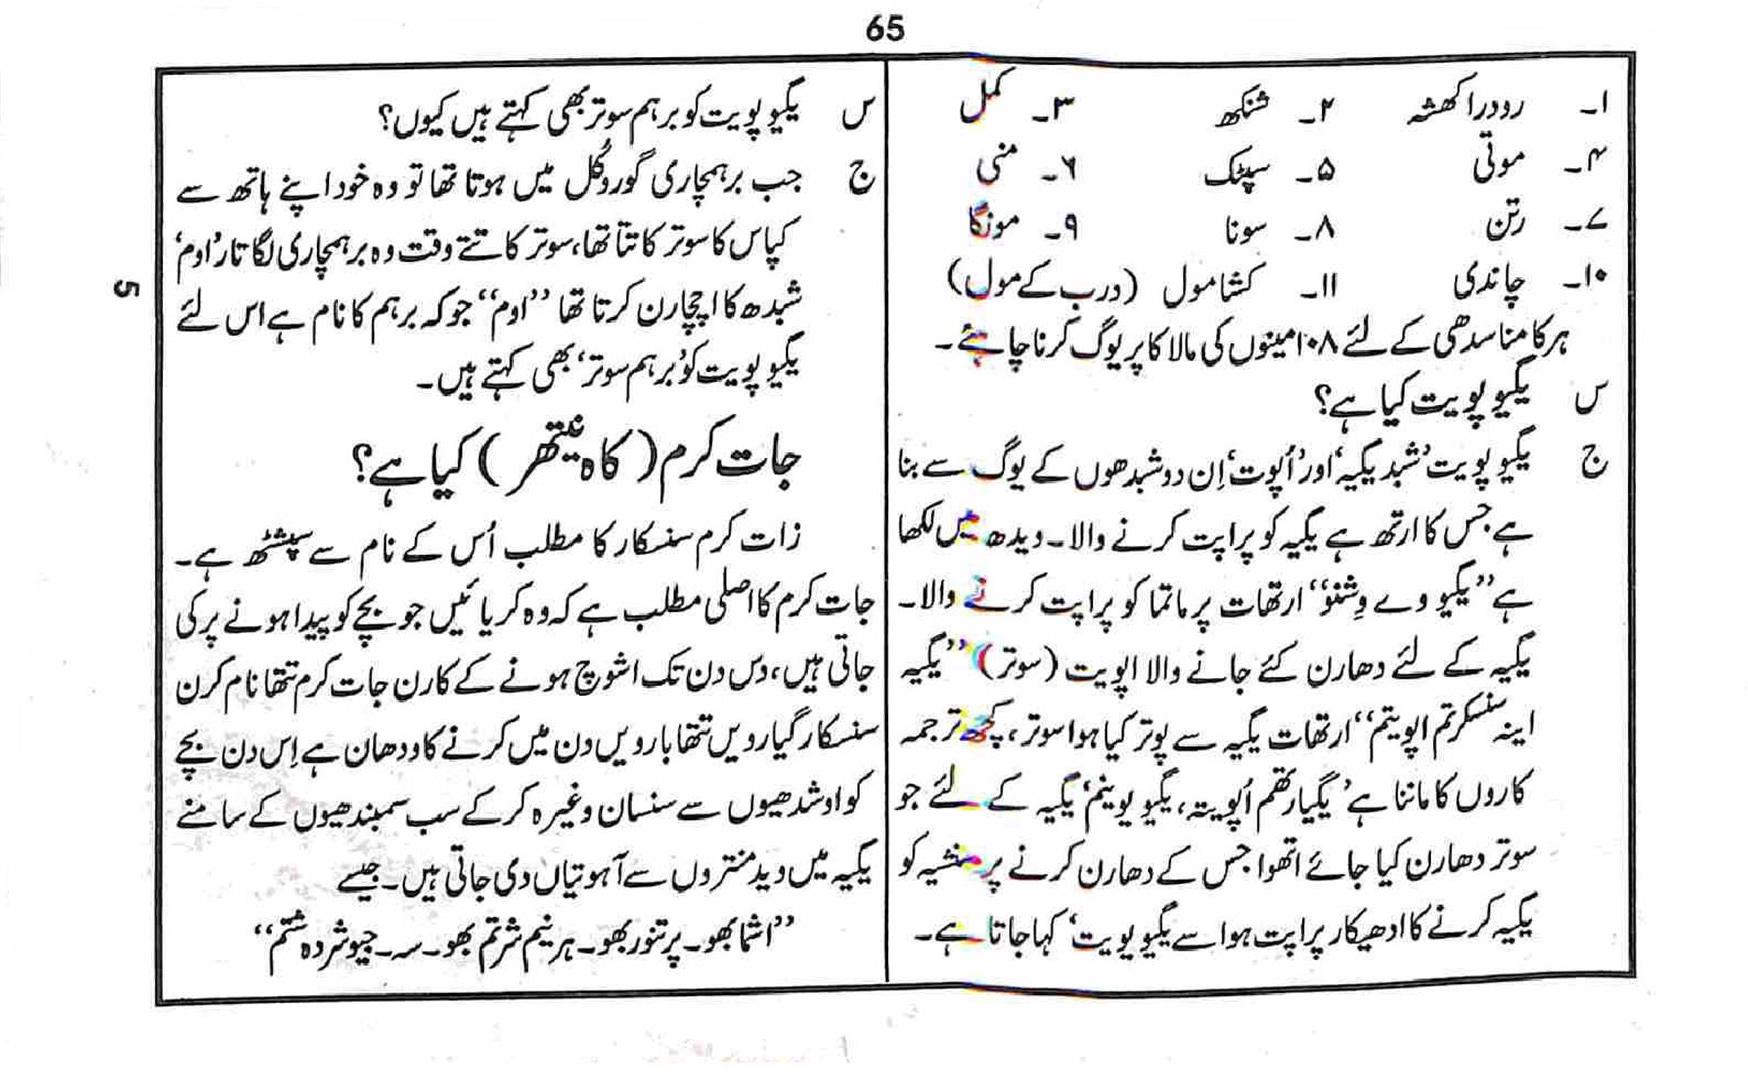 65
۱۔ رودراکھشہ ۲۔ شنکھ ۳۔ کمل
۴۔ موتی ۵۔ سپٹک ۶۔ منی
۷۔ رتن ۸۔ سونا ۹۔ مونگا
۱۰۔ چاندی ۱۱۔ کشامول (درب کے مول)
ہر کامنا سدھی کے لئے ۱۰۸ مینوں کی مالا کا پریوگ کرنا چاہئے۔
س یگیوپویت کیا ہے؟
ج یگیوپویت‘ شبد یگیہ‘ اور’اُپوت‘ اِن دو شبدھوں کے یوگ سے بنا
ہے جس کا ارتھ ہے یگیہ کو پراپت کرنے والا۔ ویدھ میں لکھا
ہے ’’یگیو وے وِشنوُ‘‘ ارتھات پرماتما کو پراپت کرنے والا۔
یگیہ کے لئے دھارن کئے جانے والا اپویت (سوتر) ’’یگیہ
اینہ سنسکرتم اپویتم‘‘ ارتھات یگیہ سے پوتر کیا ہوا سوتر، کچھ ترجمہ
کاروں کا ماننا ہے’ یگیارتھم اُپویتہ، یگیوپویتم‘ یگیہ کے لئے جو
سوتر دھارن کیا جائے اتھوا جس کے دھارن کرنے پر منشیہ کو
یگیہ کرنے کا ادھیکار پراپت ہوا سے یگیوپویت‘ کہا جاتا ہے۔
س یگیوپویت کو برہم سوتر بھی کہتے ہیں کیوں؟
ج جب برہمچاری گوروکُل میں ہوتا تھا تو وہ خود اپنے ہاتھ سے
کپاس کا سوتر کاتتا تھا، سوتر کاتتے وقت وہ برہمچاری لگاتار’اوم‘
شبدھ کا اچچارن کرتا تھا ’’اوم‘‘ جو کہ برہم کا نام ہے اس لئے
یگیوپویت کو’برہم سوتر‘ بھی کہتے ہیں۔
جات کرم (کاہ نیتھر) کیا ہے؟
زات کرم سنسکار کا مطلب اُس کے نام سے سپشٹھ ہے۔
جات کرم کا اصلی مطلب ہے کہ وہ کریائیں جو بچے کو پیدا ہونے پر کی
جاتی ہیں، دس دن تک اشوچ ہونے کے کارن جات کرم تتھا نام کرن
سنسکار گیارویں تتھا بارویں دن میں کرنے کا ودھان ہے اِس دن بچے
کو اوشدھیوں سے سنسان وغیرہ کر کے سب سمبندھیوں کے سامنے
یگیہ میں وید منتروں سے آہوتیاں دی جاتی ہیں۔ جیسے
’’اشما بھو۔ پرتنور بھو۔ ہرنیم شرتم بھو۔ سہ۔ جیو شردہ شتم‘‘
5